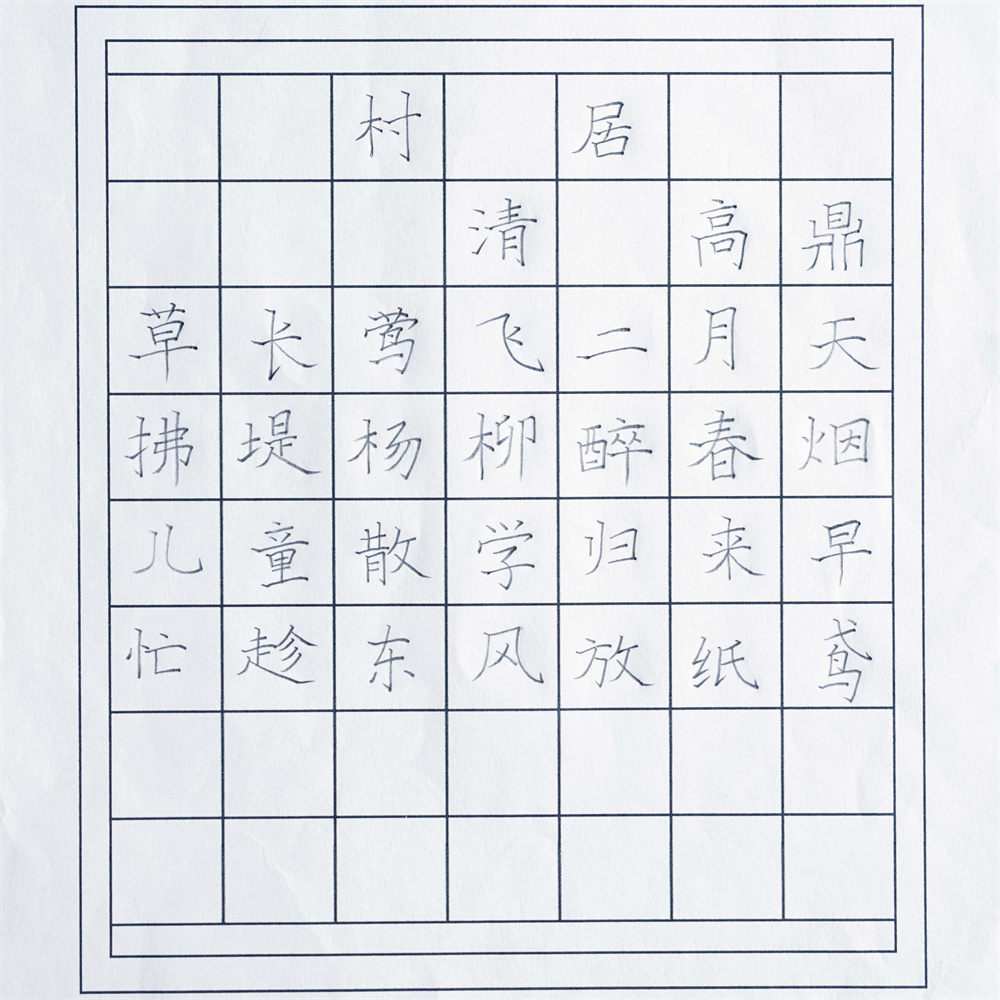 村居
清 高鼎
草长莺飞二月天
拂堤杨柳醉春烟
儿童散学归来早
忙趁东风放纸鸢